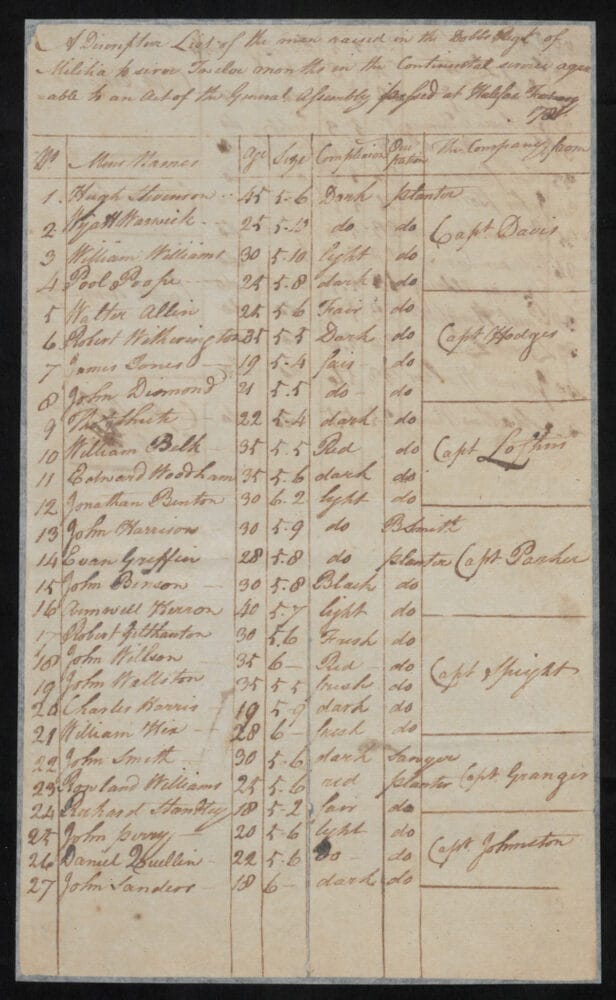 A Descriptive List of the men raised in the Dobbs Regt of
Militia to serve Twelve months in the Continental service agre
=able to an Act of the General Assembly passed at Halifax
1781
No Mens Names Age Size Complexion Occupation The Company from
1 Hugh Stevenson 45 5-6 Dark planter
2 Wyatt Warwick 25 5- do do Capt Davis
3 William Williams 30 5-10 light do
4 Pool 25 5.8 dark do
5 Walter Allin 25 5.6 Fair do
6 Robert Witherington 35 5.5 Dark do Capt Hodges
7 James Jones 19 5-4 fair do
8 John Dismond 21 5.5 do do
9 22 5.4 dark do
10 William Belk 35 5.5 Red do Capt
11 Edward Woodham 35 5.6 dark do
12 Jonathan Benton 30 6.2 light do
13 John Harrison 30 5.9 do BSmith
14 Evan Griffin 28 5.8 do planter Capt Parker
15 John Benson 30 5.8 Black do
16 Herron 40 5.7 light do
17 Robert 30 5.6 Fresh do
18 John Willson 35 6 Red do Capt Speight
19 John Wallston 35 5.5 fresh do
20 Charles Harris 19 5-9 dark do
21 William Hix 28 6 fresh do
22 John Smith 30 5.6 dark Sawyer
23 Rowland Williams 25 5.6 red planter Capt Granger
24 Richard Standley 18 5-2 fair do
25 John perry 20 5-6 light do
26 Daniel Quillin 22 5.6 Do do Capt Johnston
27 John Sanders 18 6 dark do